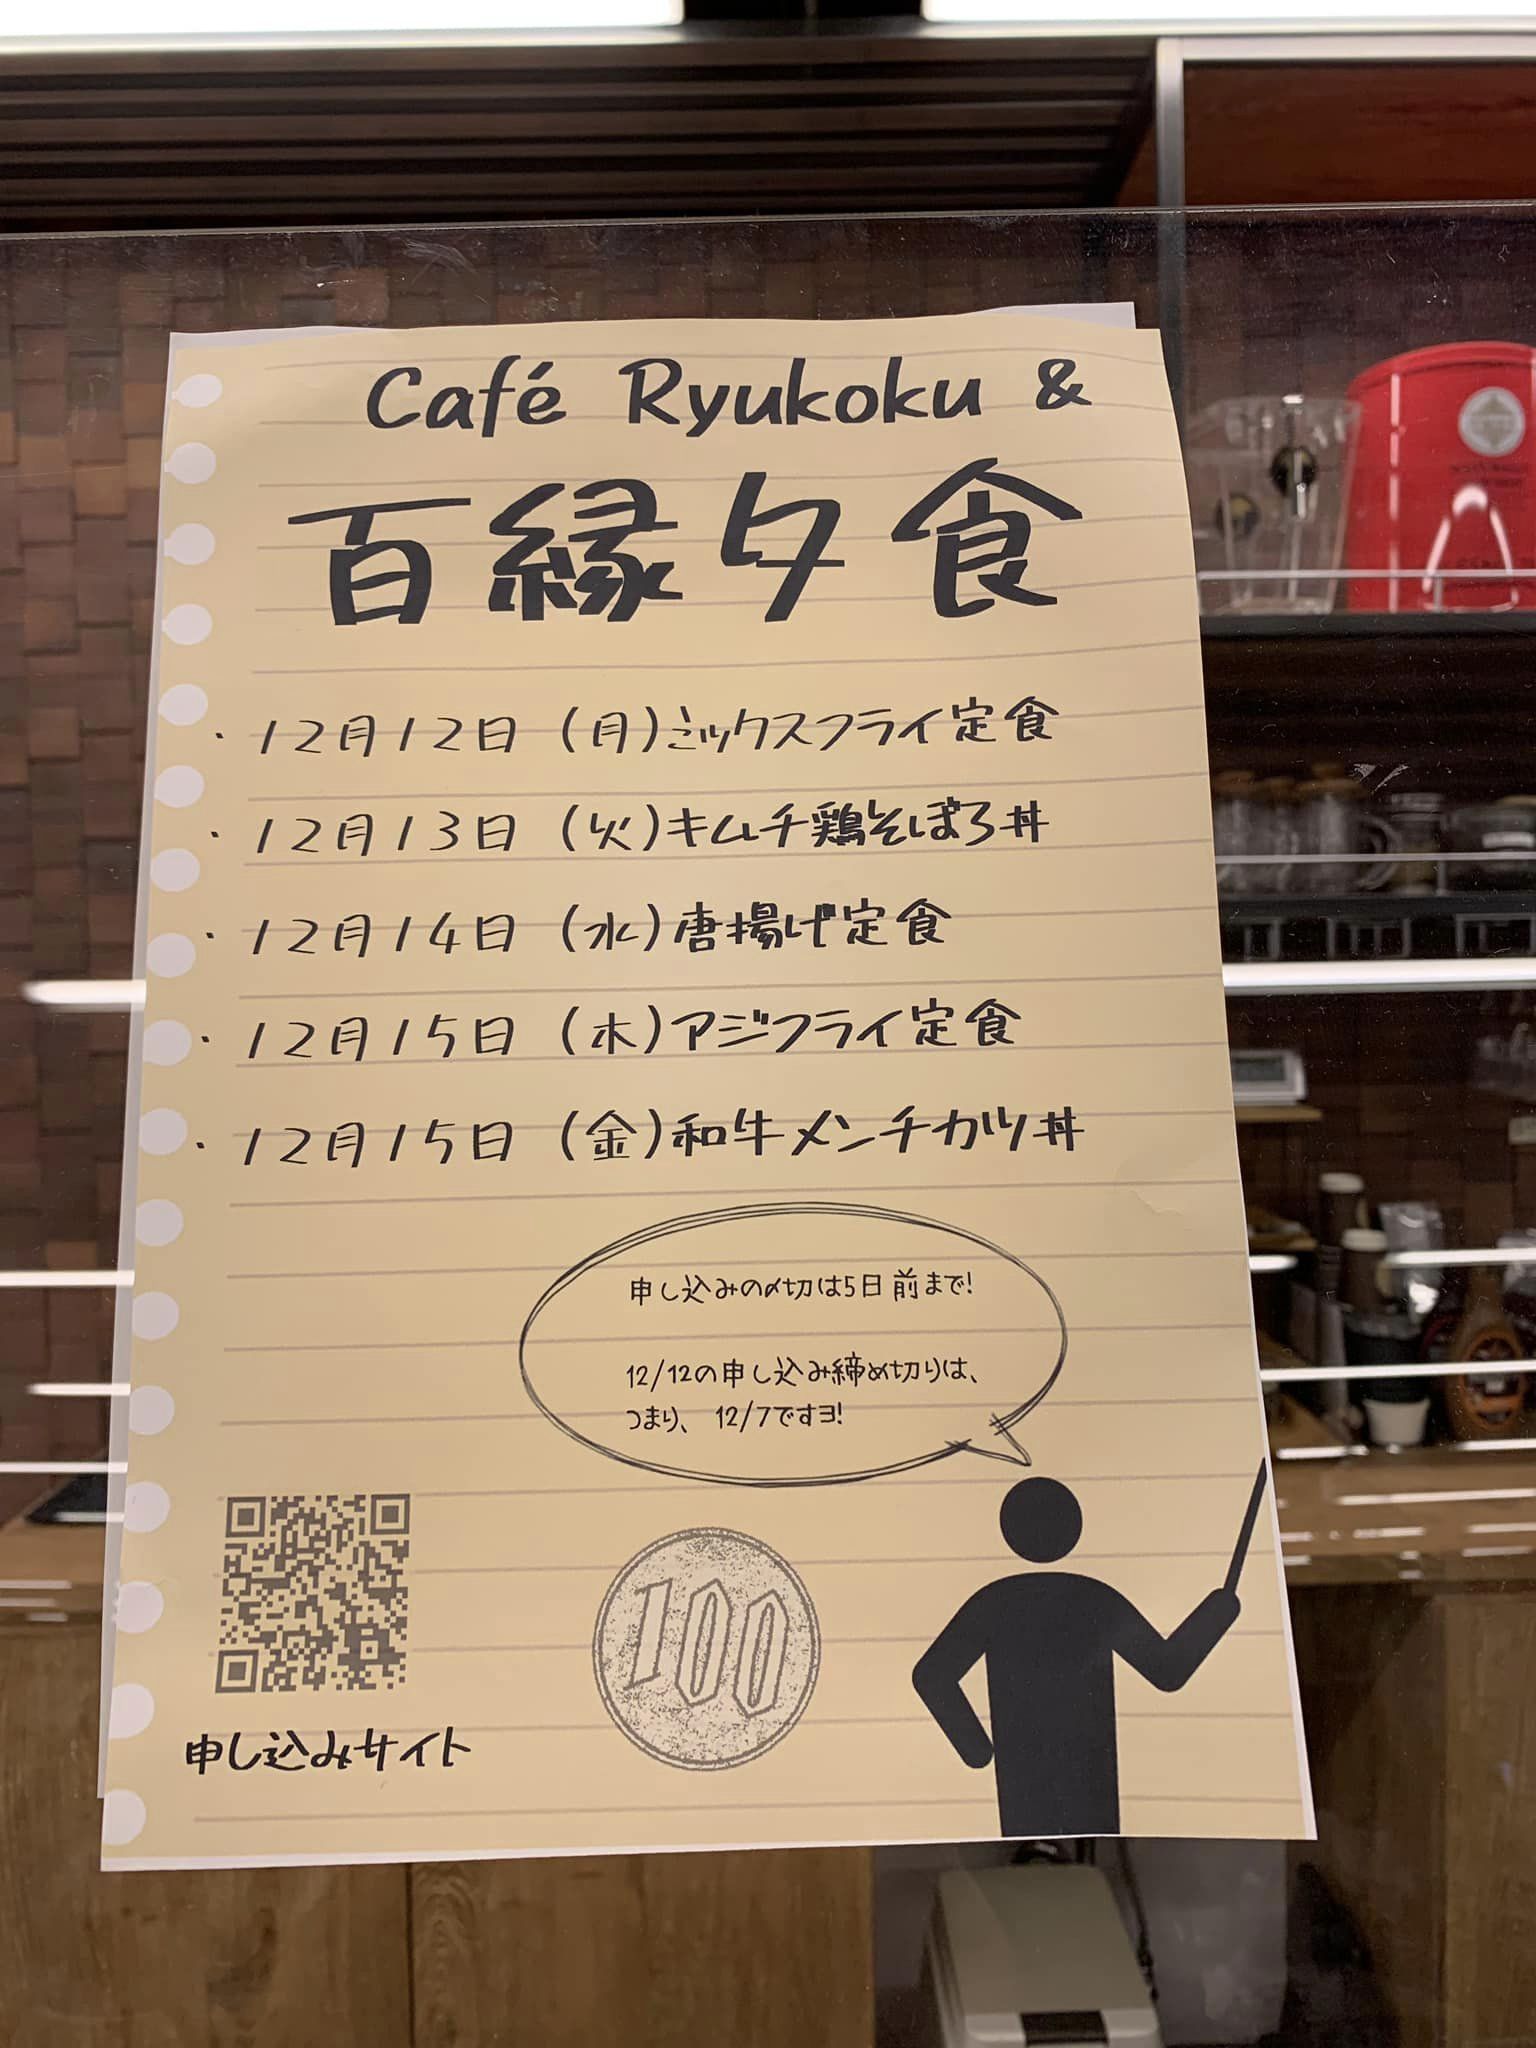 Café Ryukoku &
百縁夕食
・12月12日（月）ミックスフライ定食
・12月13日（火）キムチ鶏そぼろ丼
・12月14日（水）唐揚げ定食
・12月15日（木）アジフライ定食
・12月15日（金）和牛メンチカツ丼
申し込みの〆切は5日前まで!
12/12の申し込み締め切りは、
つまり、12/7ですヨ!
100
申し込みサイト